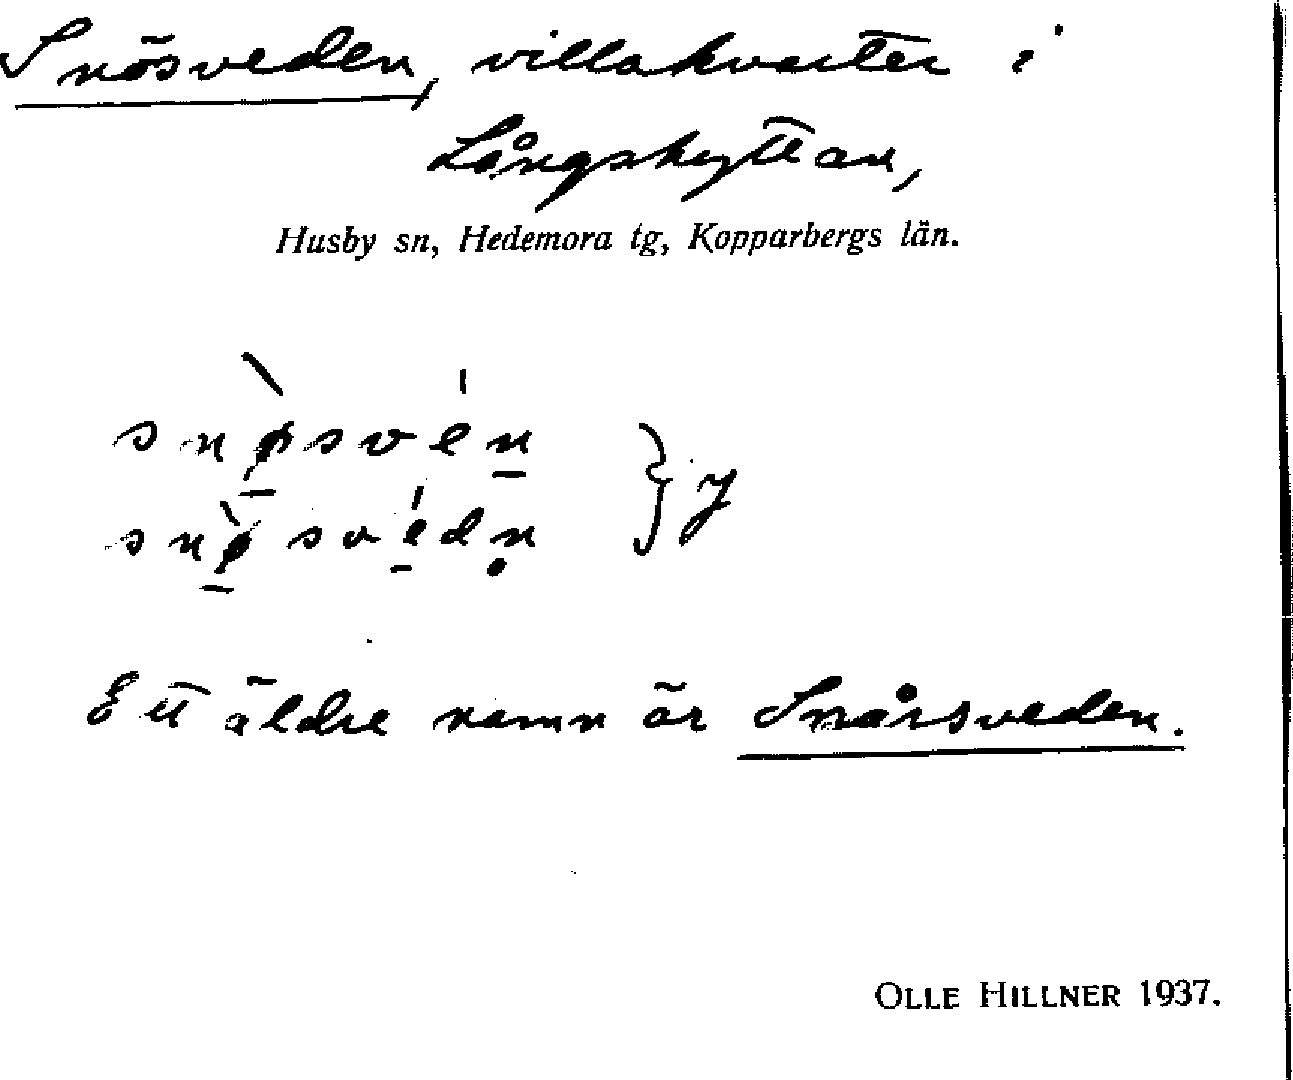 Snösveden, villakvarter i
Långshyttan,
Husby sn, Hedemora tg, Kopparbergs län.
snø̀svén
snø̀svédṇ } y
Ett äldre namn är Snårsveden.
OLLE HILLNER 1937.